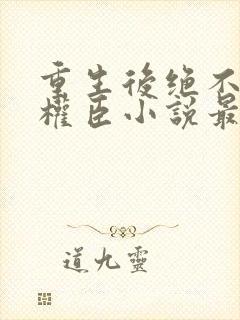 重生後绝不
權臣小說最
道九靈